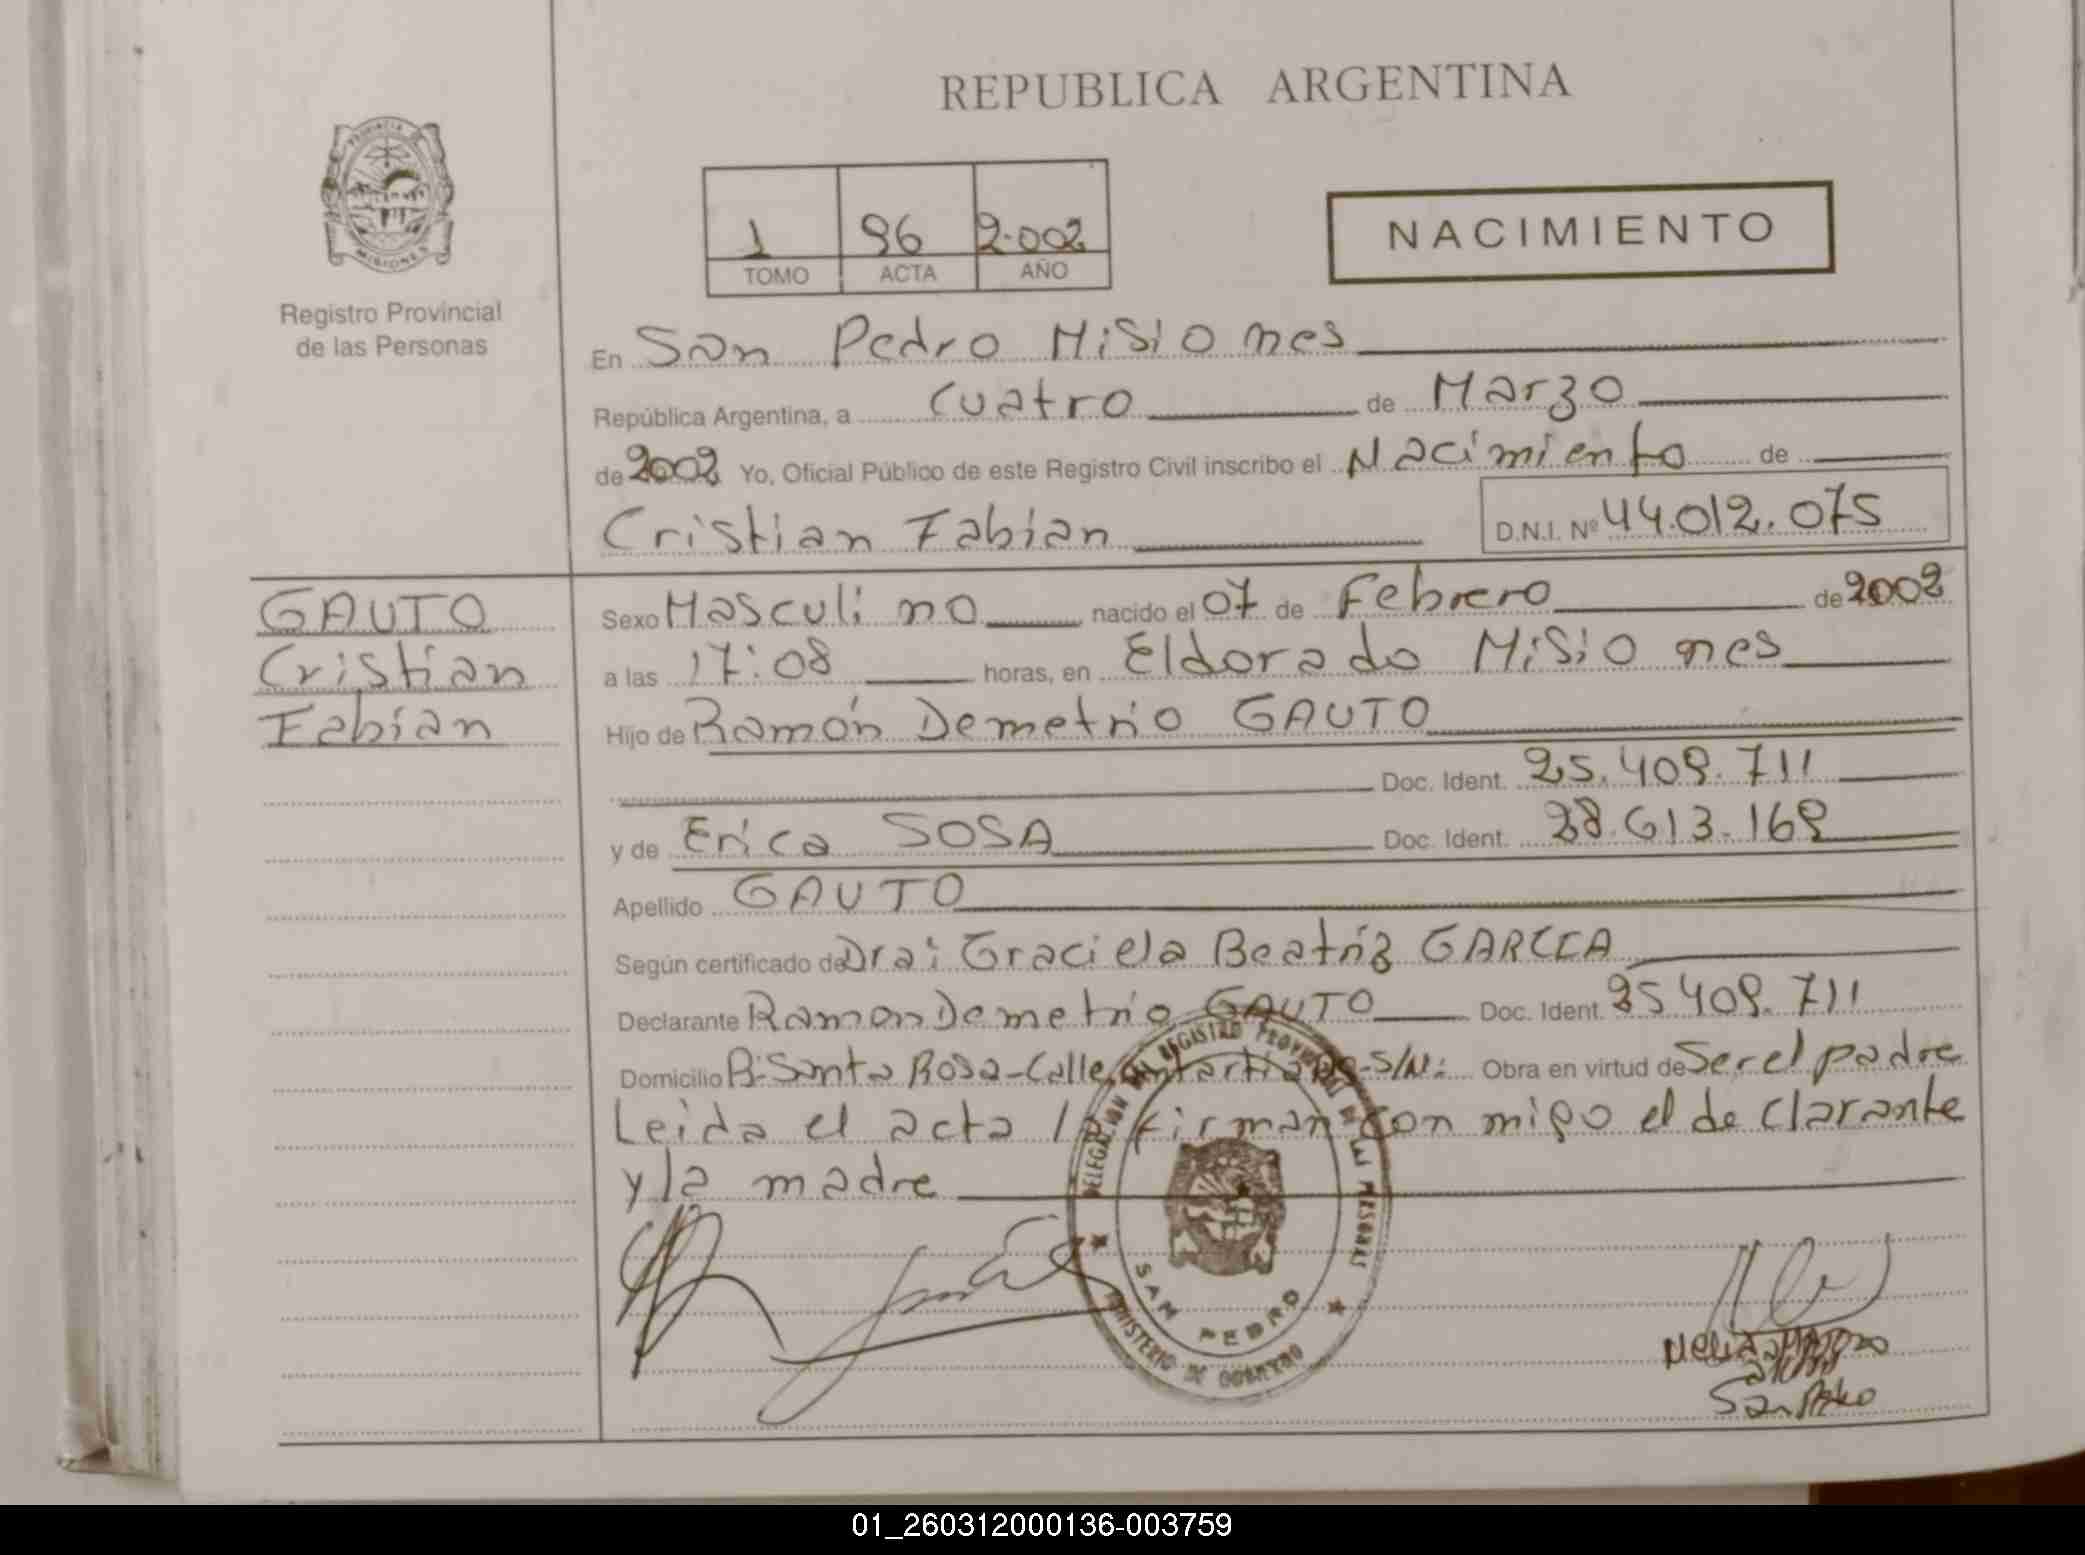 REPUBLICA ARGENTINA
PROVINCIA
MISIONES
Registro Provincial
de las Personas
1 96 2.002
TOMO ACTA AÑO
NACIMIENTO
En San Pedro Misiones
República Argentina, a Cuatro de Marzo
de 2002 Yo, Oficial Público de este Registro Civil inscribo el Nacimiento de
Cristian Fabian D.N.I. Nº 44.012.075
GAUTO
Cristian
Fabian
Sexo Masculino nacido el 07 de Febrero de 2002
a las 17:08 horas, en Eldorado Misiones
Hijo de Ramón Demetrio GAUTO
Doc. Ident. 25.409.711
y de Erica SOSA Doc. Ident. 28.613.169
Apellido GAUTO
Según certificado de Dra: Graciela Beatriz GARCIA
Declarante Ramon Demetrio GAUTO Doc. Ident. 25409.711
Domicilio B: Santa Rosa-Calle Antartida-S/N: Obra en virtud de Ser el padre
Leida el acta la firman con migo el declarante
y la madre
DELEGACION DEL REGISTRO PROVINCIAL DE LAS PERSONAS
SAN PEDRO
MINISTERIO DE GOBIERNO
San Pedro
01_260312000136-003759